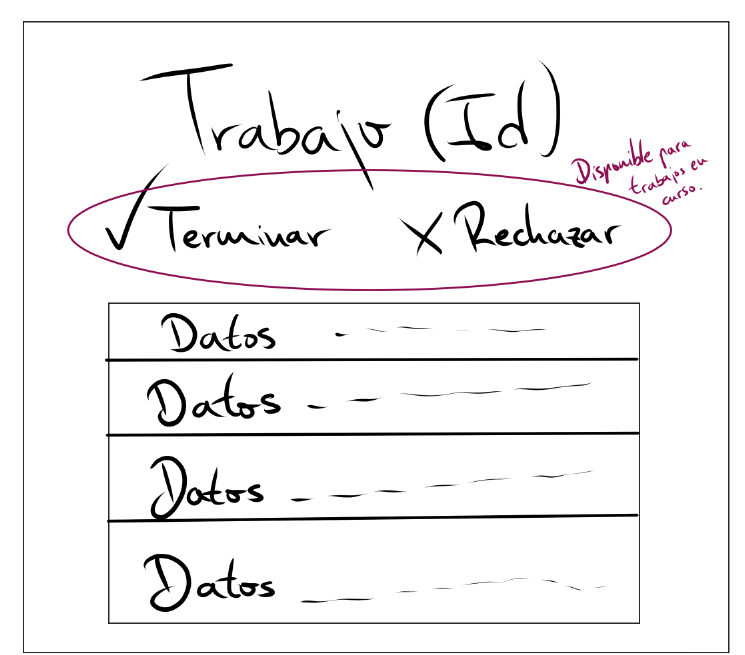 Trabajo (Id)
Disponible para
trabajos en
curso.
✓ Terminar X Rechazar
Datos
Datos
Datos
Datos